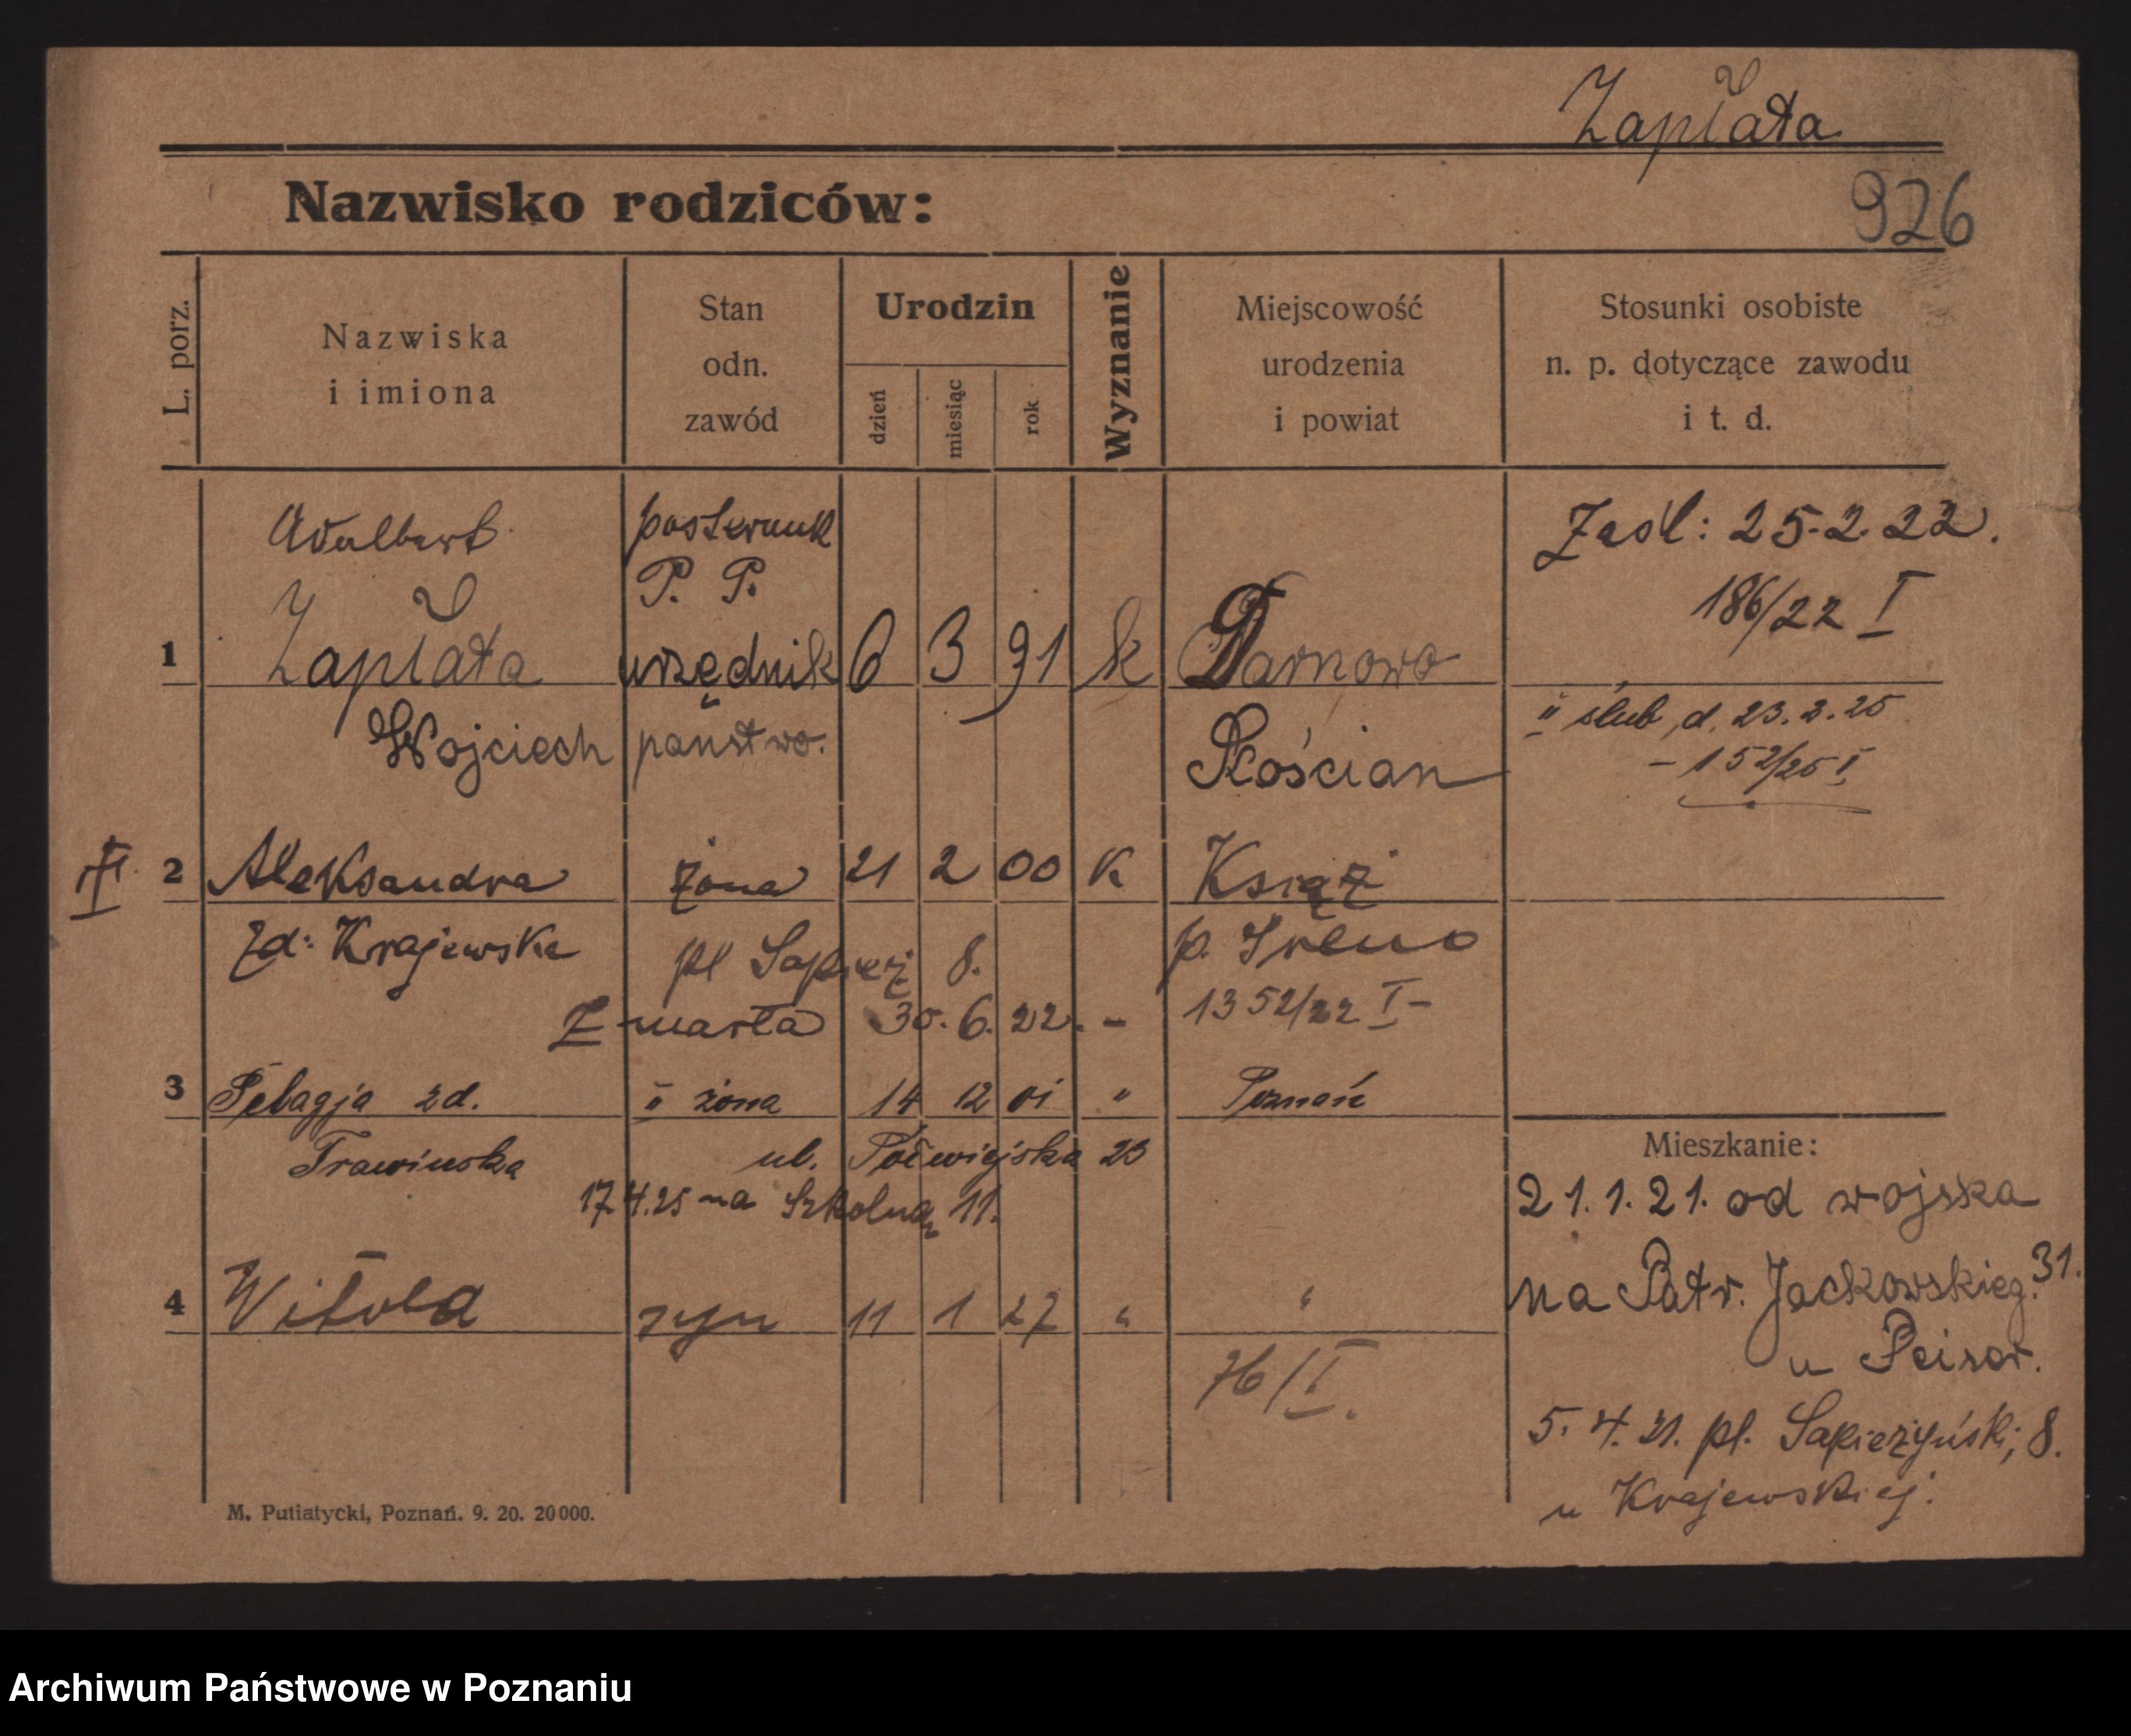 Zapłata
926
Nazwisko rodziców:
L. porz.
Nazwiska
i imiona
Stan
odn.
zawód
Urodzin
dzień
miesiąc
rok
Wyznanie
Miejscowość
urodzenia
i powiat
Stosunki osobiste
n. p. dotyczące zawodu
i t. d.
Adalbert posterunk
P. P.
1 Zapłata urzędnik 6 3 91 k Darnowo
Wojciech państwo. Kościan
Zaśl: 25.2.22.
186/22 I
II ślub d. 23.2.25
- 152/25 I
2 Aleksandra żona 21 2 00 K Książ
Zd: Krajewska p. Śrem
pl Sapież 8.
Zmarła 30.6.22. - 1352/22 I -
3 Pelagja zd. II żona 14 12 01 " Poznań
Trawińska ul. Półwiejska 23
17.4.25 na Szkolną 11.
4 Witold syn 11 1 27 " "
76/I.
Mieszkanie:
21.1.21. od wojska
na Patr. Jackowskieg. 31.
u
5.4.21. pl. Sapieżyński, 8.
u Krajewskiej.
M. Putiatycki, Poznań. 9. 20. 20000.
Archiwum Państwowe w Poznaniu